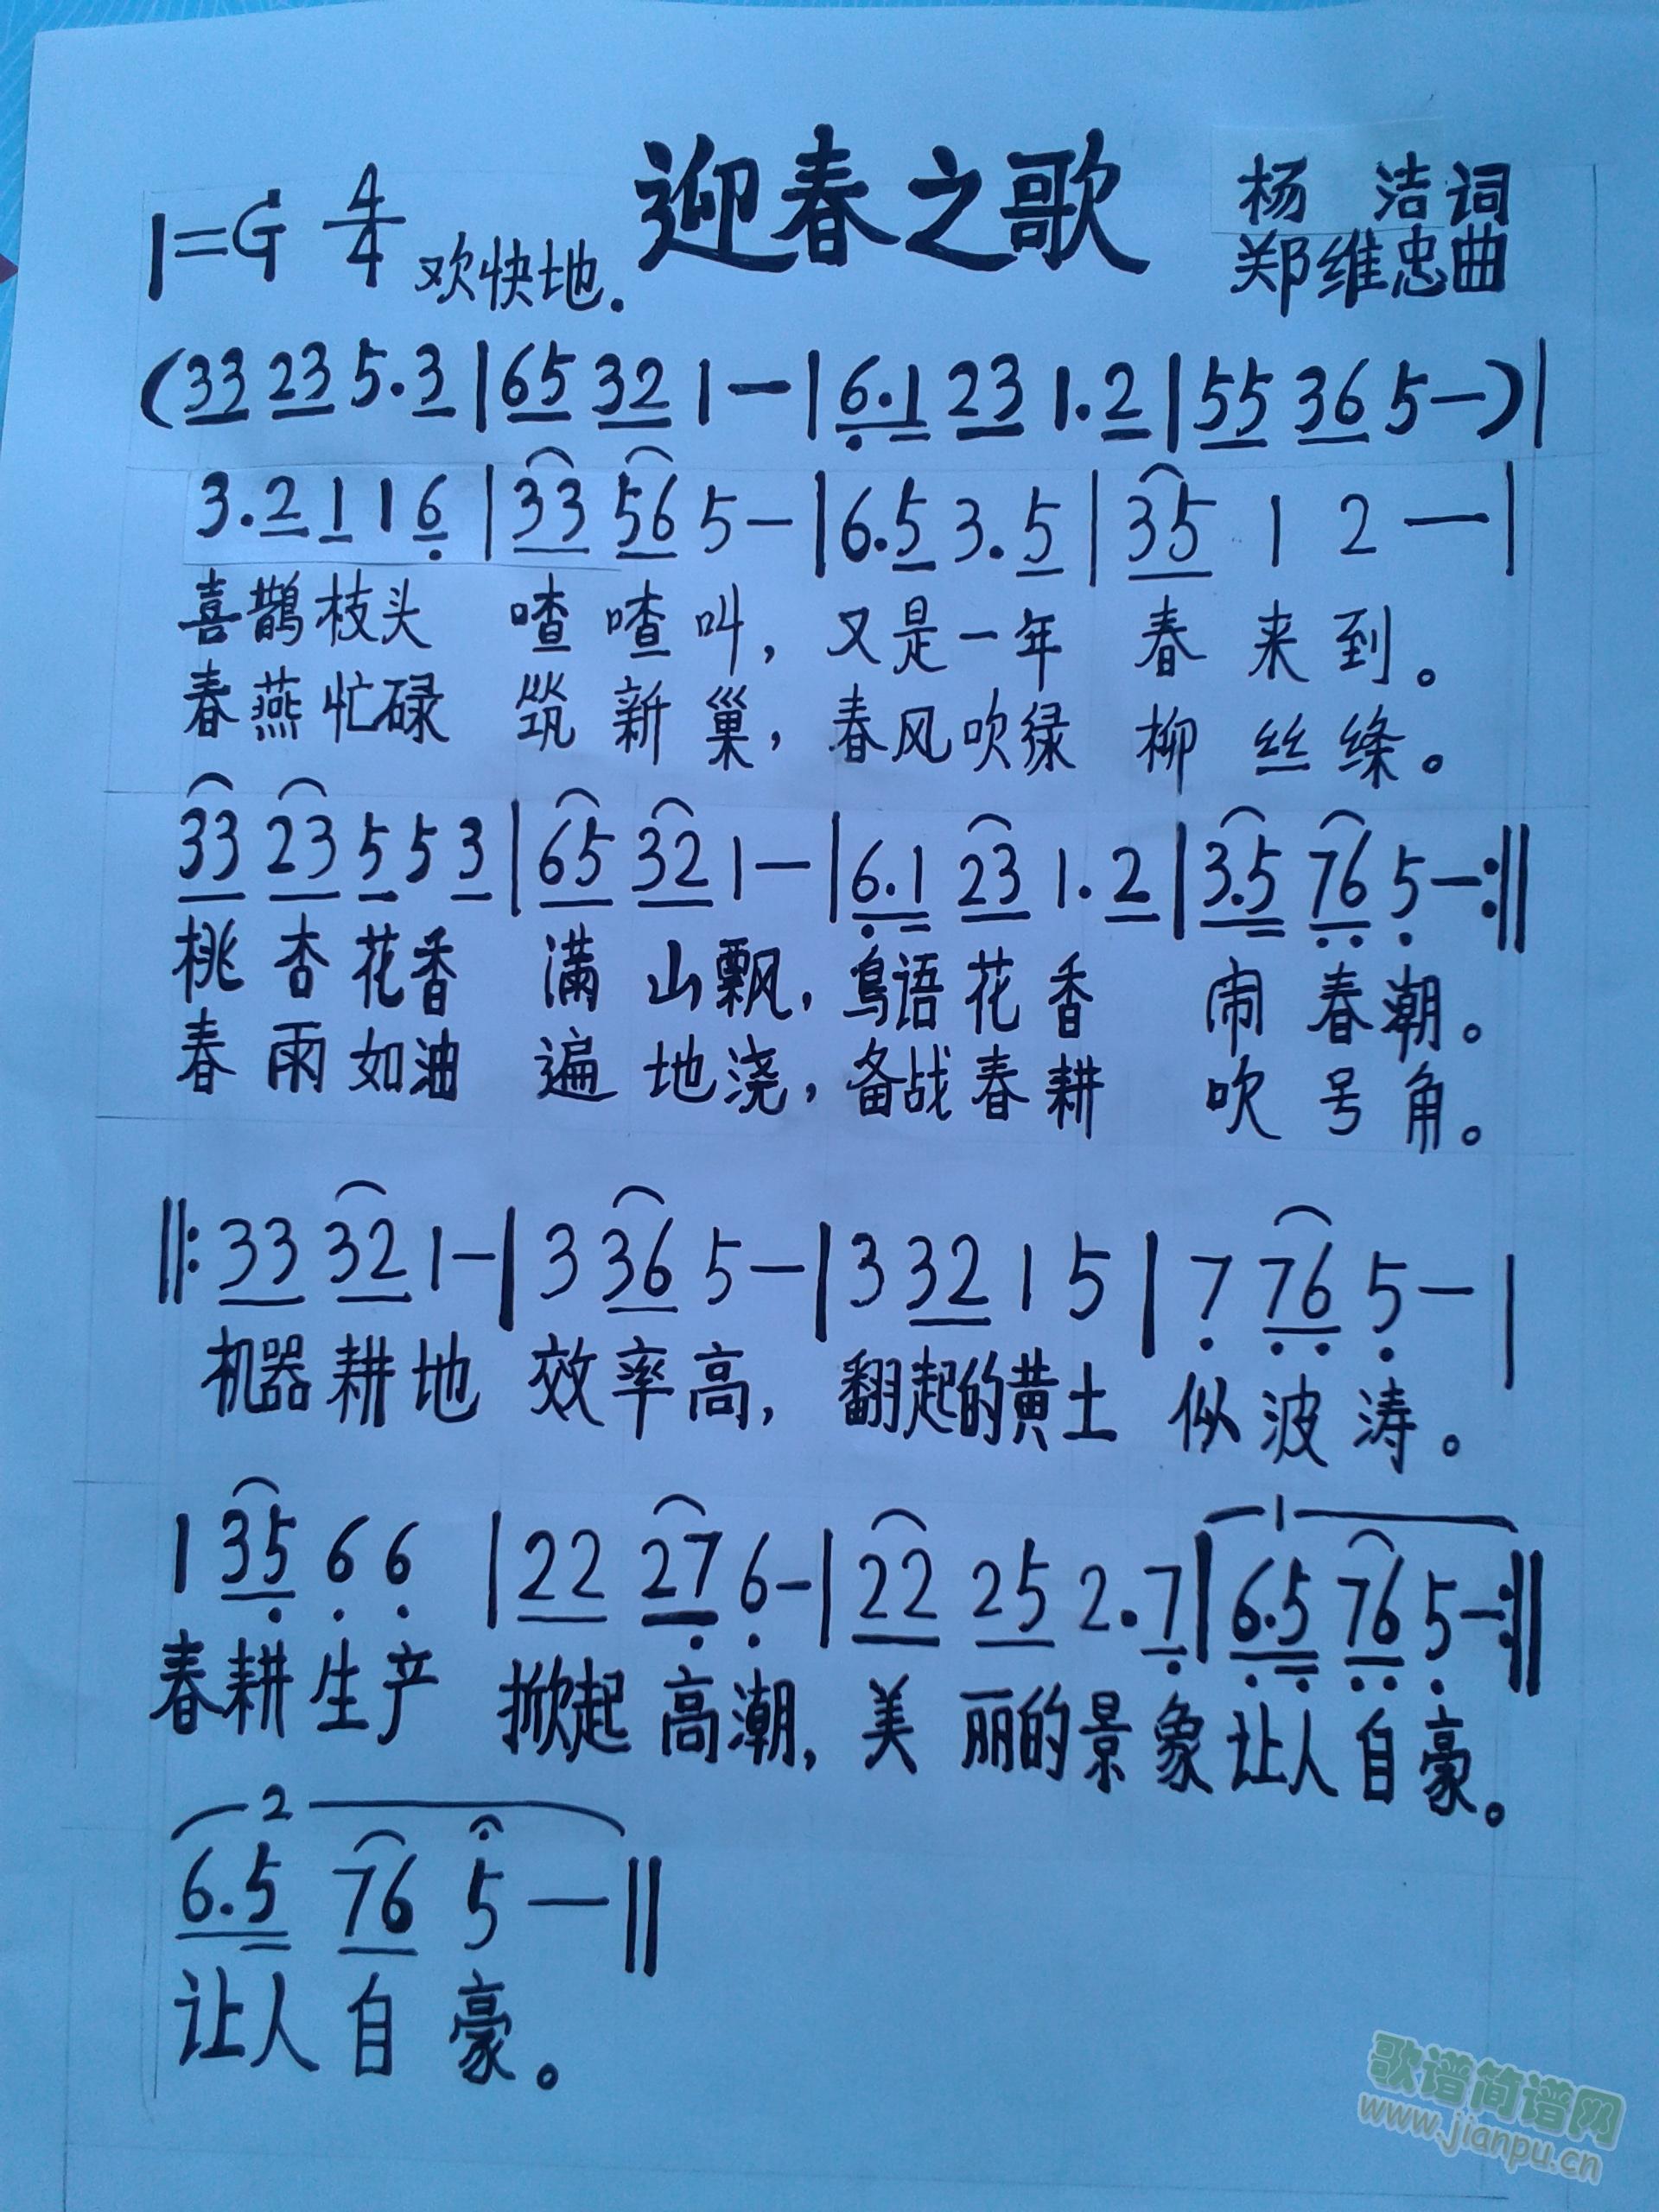 1=G 4/4 欢快地. 迎春之歌 杨 洁词
郑维忠曲
(33 23 5.3|65 32 1—|6.1 23 1.2|55 36 5—)|
3.2 1 1 6|33 56 5—|6.5 3.5|35 1 2 —|
喜鹊枝头 喳喳叫，又是一年 春来到。
春燕忙碌 筑新巢，春风吹绿 柳丝绦。
33 23 5 5 3|65 32 1—|6.1 23 1.2|3.5 76 5—:||
桃杏花香 满山飘，鸟语花香 闹春潮。
春雨如油 遍地浇，备战春耕 吹号角。
||:33 32 1—|3 36 5—|3 32 1 5|7 76 5—|
机器耕地 效率高，翻起的黄土 似波涛。
1 35 6 6 |22 27 6—|22 25 2.7|1 6.5 76 5—:||
春耕生产 掀起高潮，美丽的景象让人自豪。
2
6.5 76 5 —||
让人自豪。
歌谱简谱网
www.jianpu.cn